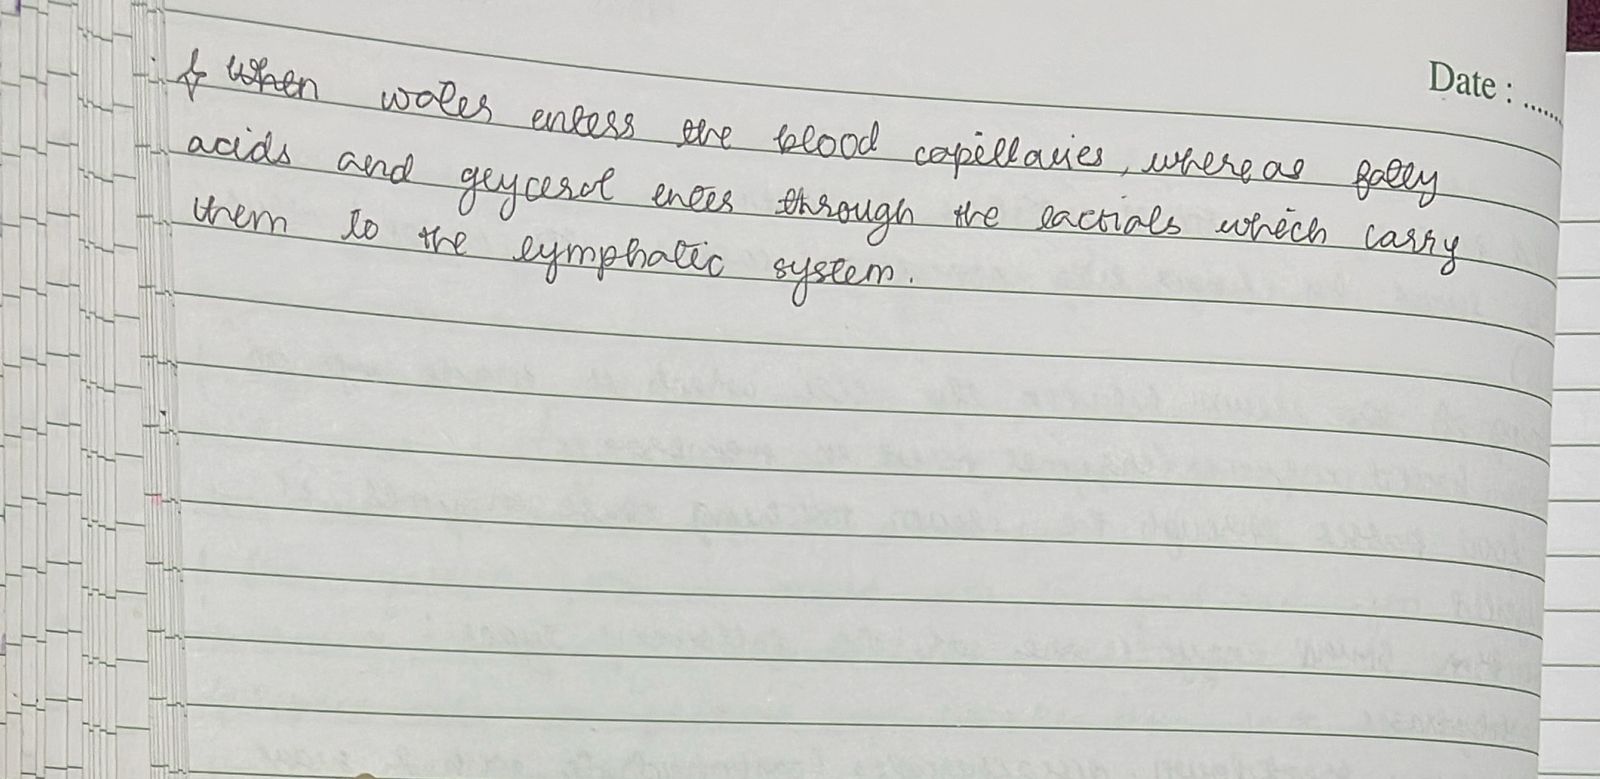 Date : ......
& when water enters the blood capillaries, where as fatty
acids and glycerol enters through the lactials which carry
them to the lymphatic system.